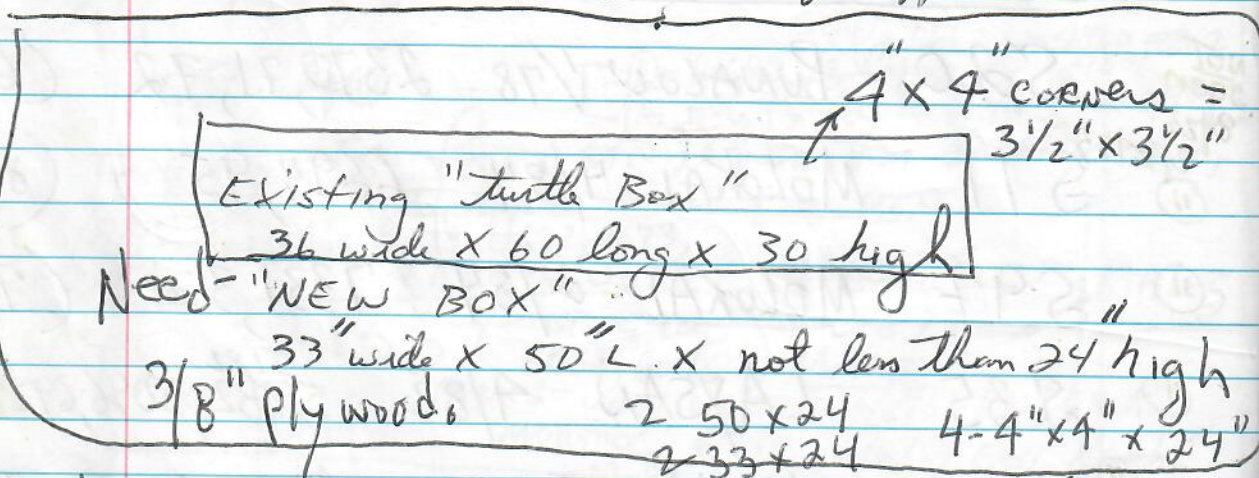 4" x 4" corners =
3 1/2" x 3 1/2"
Existing "turtle Box"
36 wide x 60 long x 30 high
Need - "NEW BOX"
33" wide x 50" L. x not less than 24" high
3/8" plywood.
2 50 x 24
2 33 x 24
4 - 4" x 4" x 24"